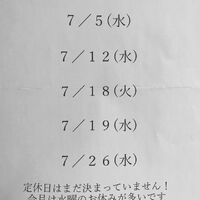 7／5(水)
7／12(水)
7／18(火)
7／19(水)
7／26(水)
定休日はまだ決まっていません！
今月は水曜のお休みが多いです